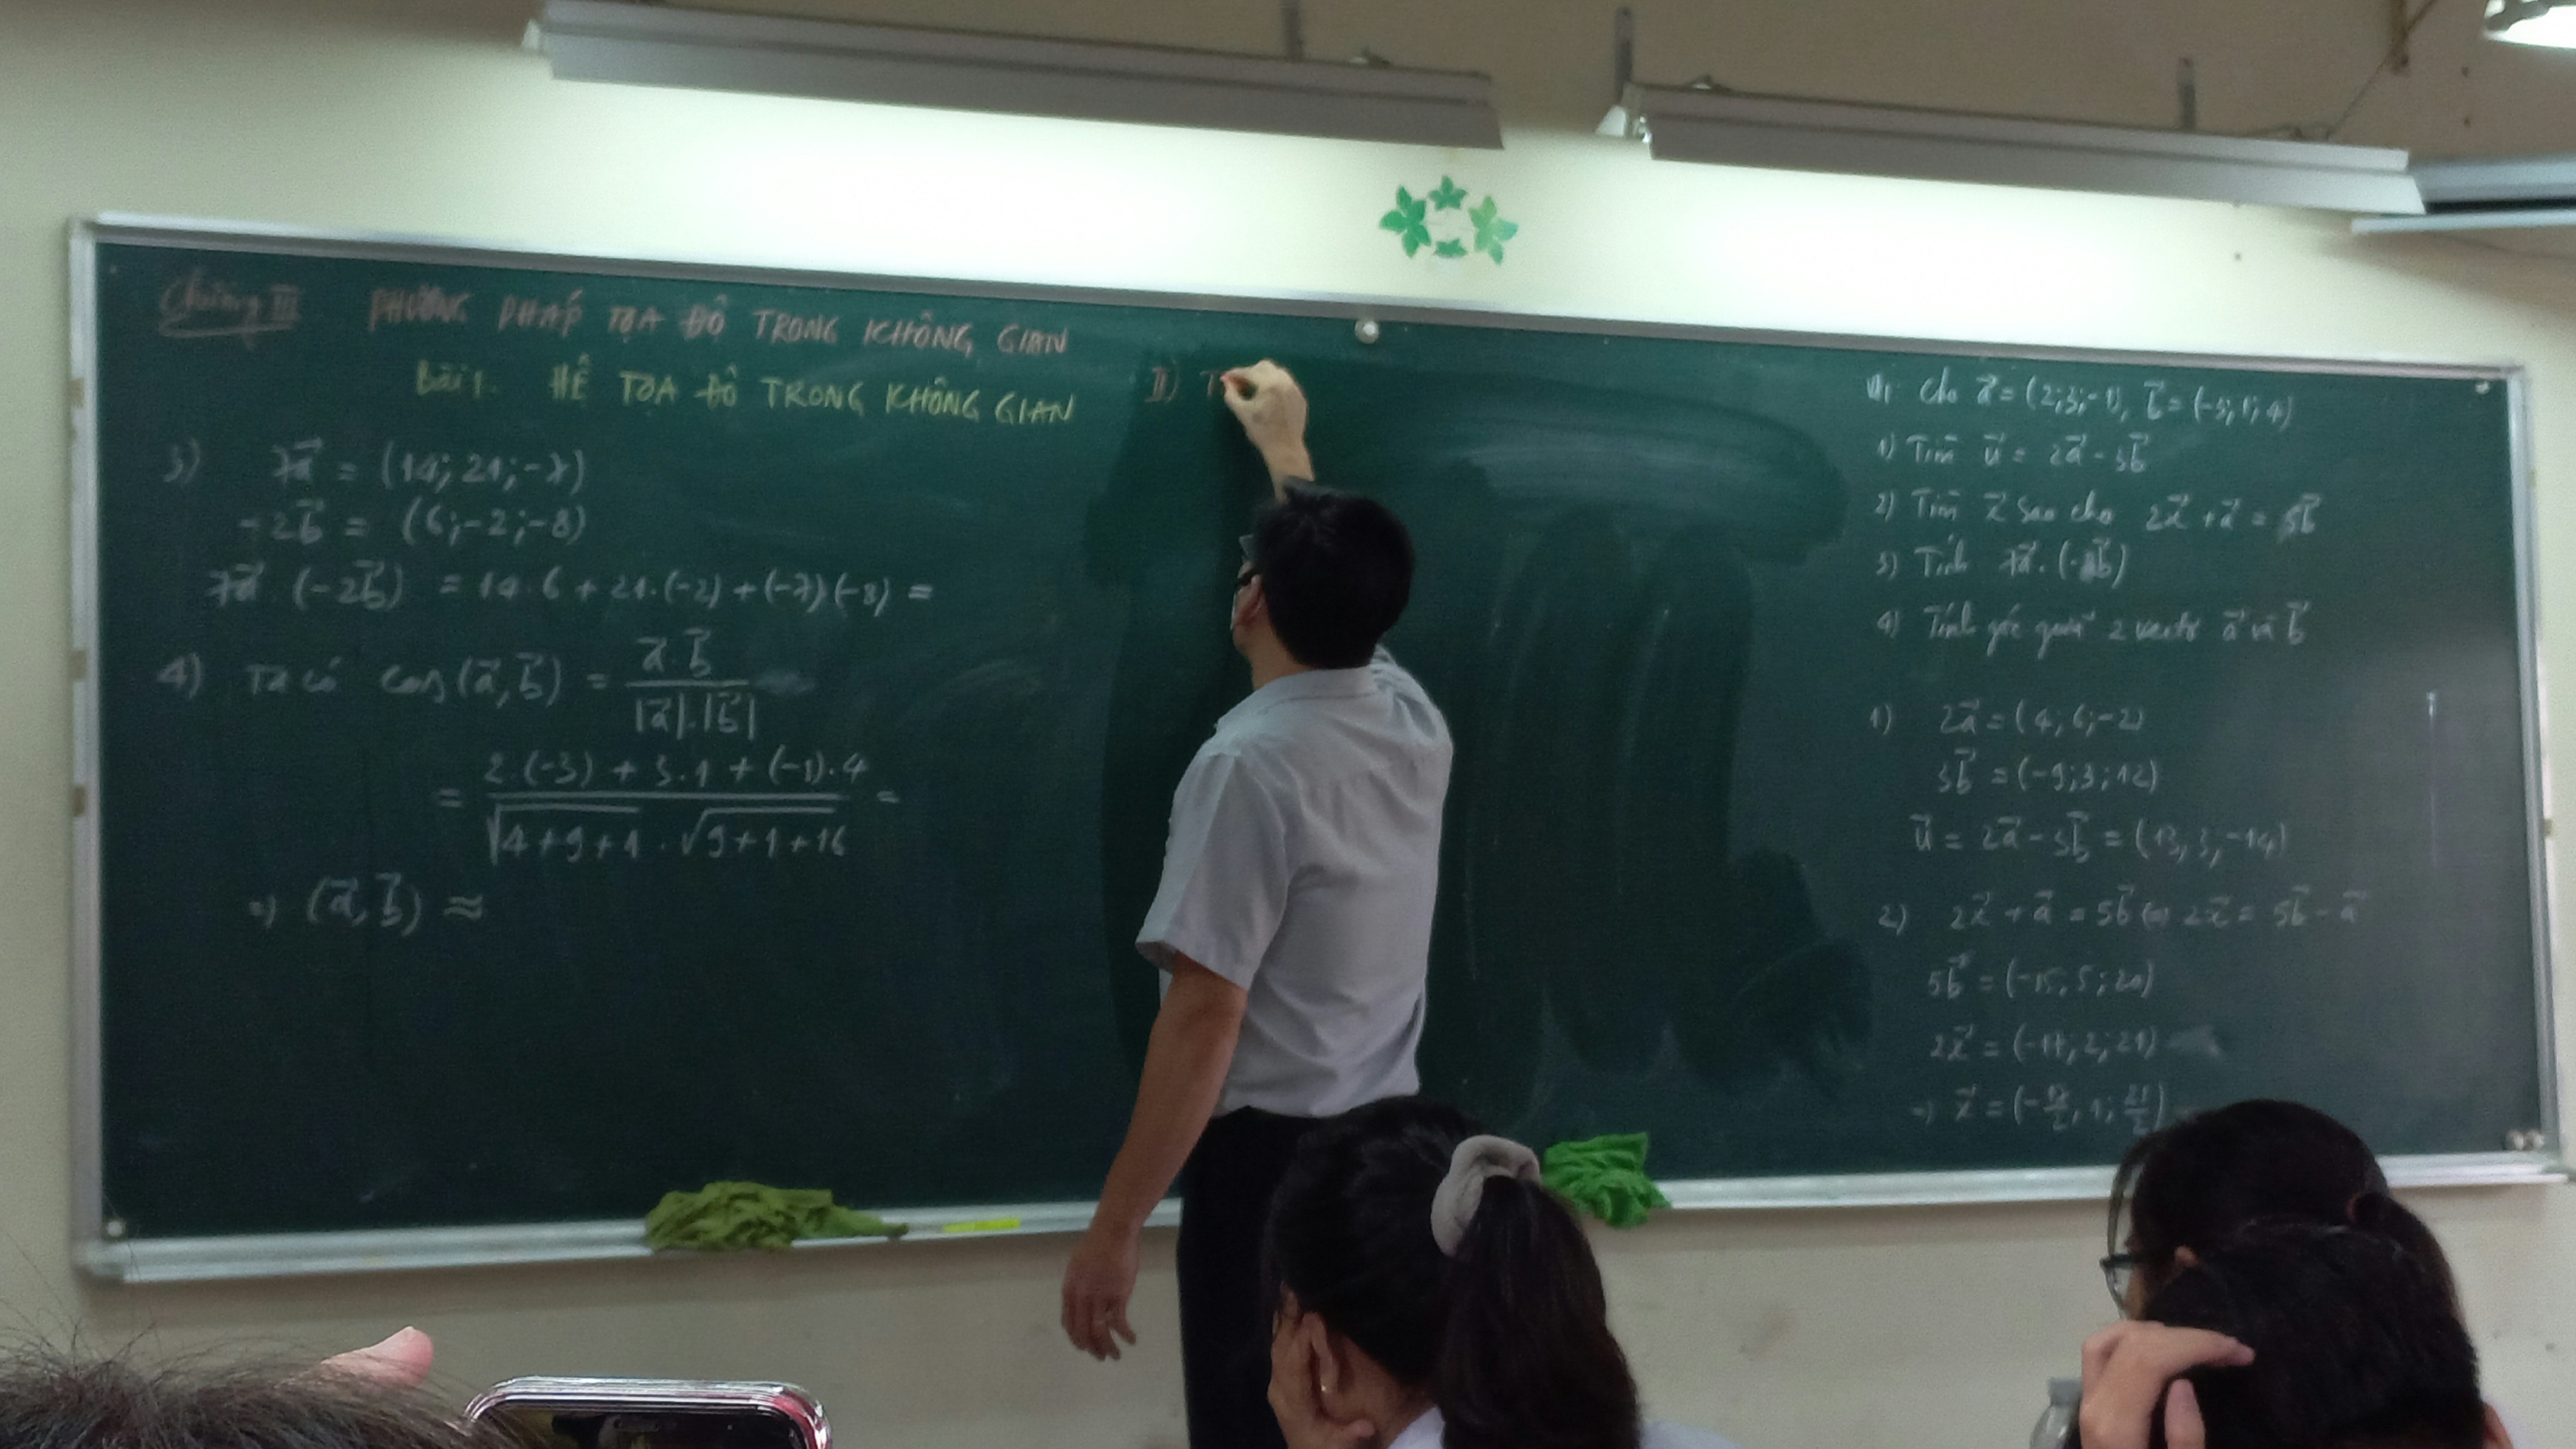 Chương III PHƯƠNG PHÁP TỌA ĐỘ TRONG KHÔNG GIAN
Bài 1. HỆ TỌA ĐỘ TRONG KHÔNG GIAN
3) 7a⃗ = (14; 21; -7)
-2b⃗ = (6; -2; -8)
7a⃗ . (-2b⃗) = 14.6 + 21.(-2) + (-7)(-8) =
4) Ta có cos(a⃗, b⃗) = a⃗.b⃗ / |a⃗|.|b⃗|
= 2.(-3) + 3.1 + (-1).4 / √4+9+1 . √9+1+16 =
⇒ (a⃗, b⃗) ≈
II) T
Cho a⃗ = (2; 3; -1), b⃗ = (-3; 1; 4)
1) Tìm u⃗ = 2a⃗ - 3b⃗
2) Tìm x⃗ sao cho 2x⃗ + a⃗ = 5b⃗
3) Tính 7a⃗ . (-2b⃗)
4) Tính góc giữa 2 vectơ a⃗ và b⃗
1) 2a⃗ = (4; 6; -2)
3b⃗ = (-9; 3; 12)
u⃗ = 2a⃗ - 3b⃗ = (13; 3; -14)
2) 2x⃗ + a⃗ = 5b⃗ ⇔ 2x⃗ = 5b⃗ - a⃗
5b⃗ = (-15; 5; 20)
2x⃗ = (-17; 2; 21)
⇒ x⃗ = (-17/2; 1; 21/2)